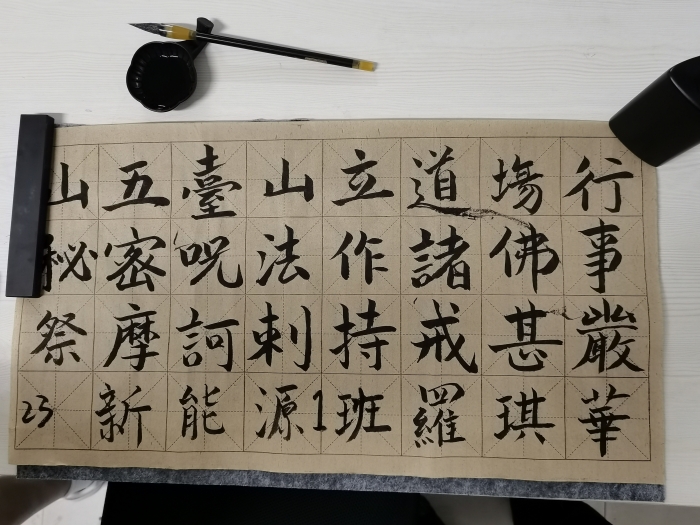 山五臺山立道塲行
秘密呪法作諸佛事
祭摩訶剌持戒甚嚴
23新能源1班羅琪華